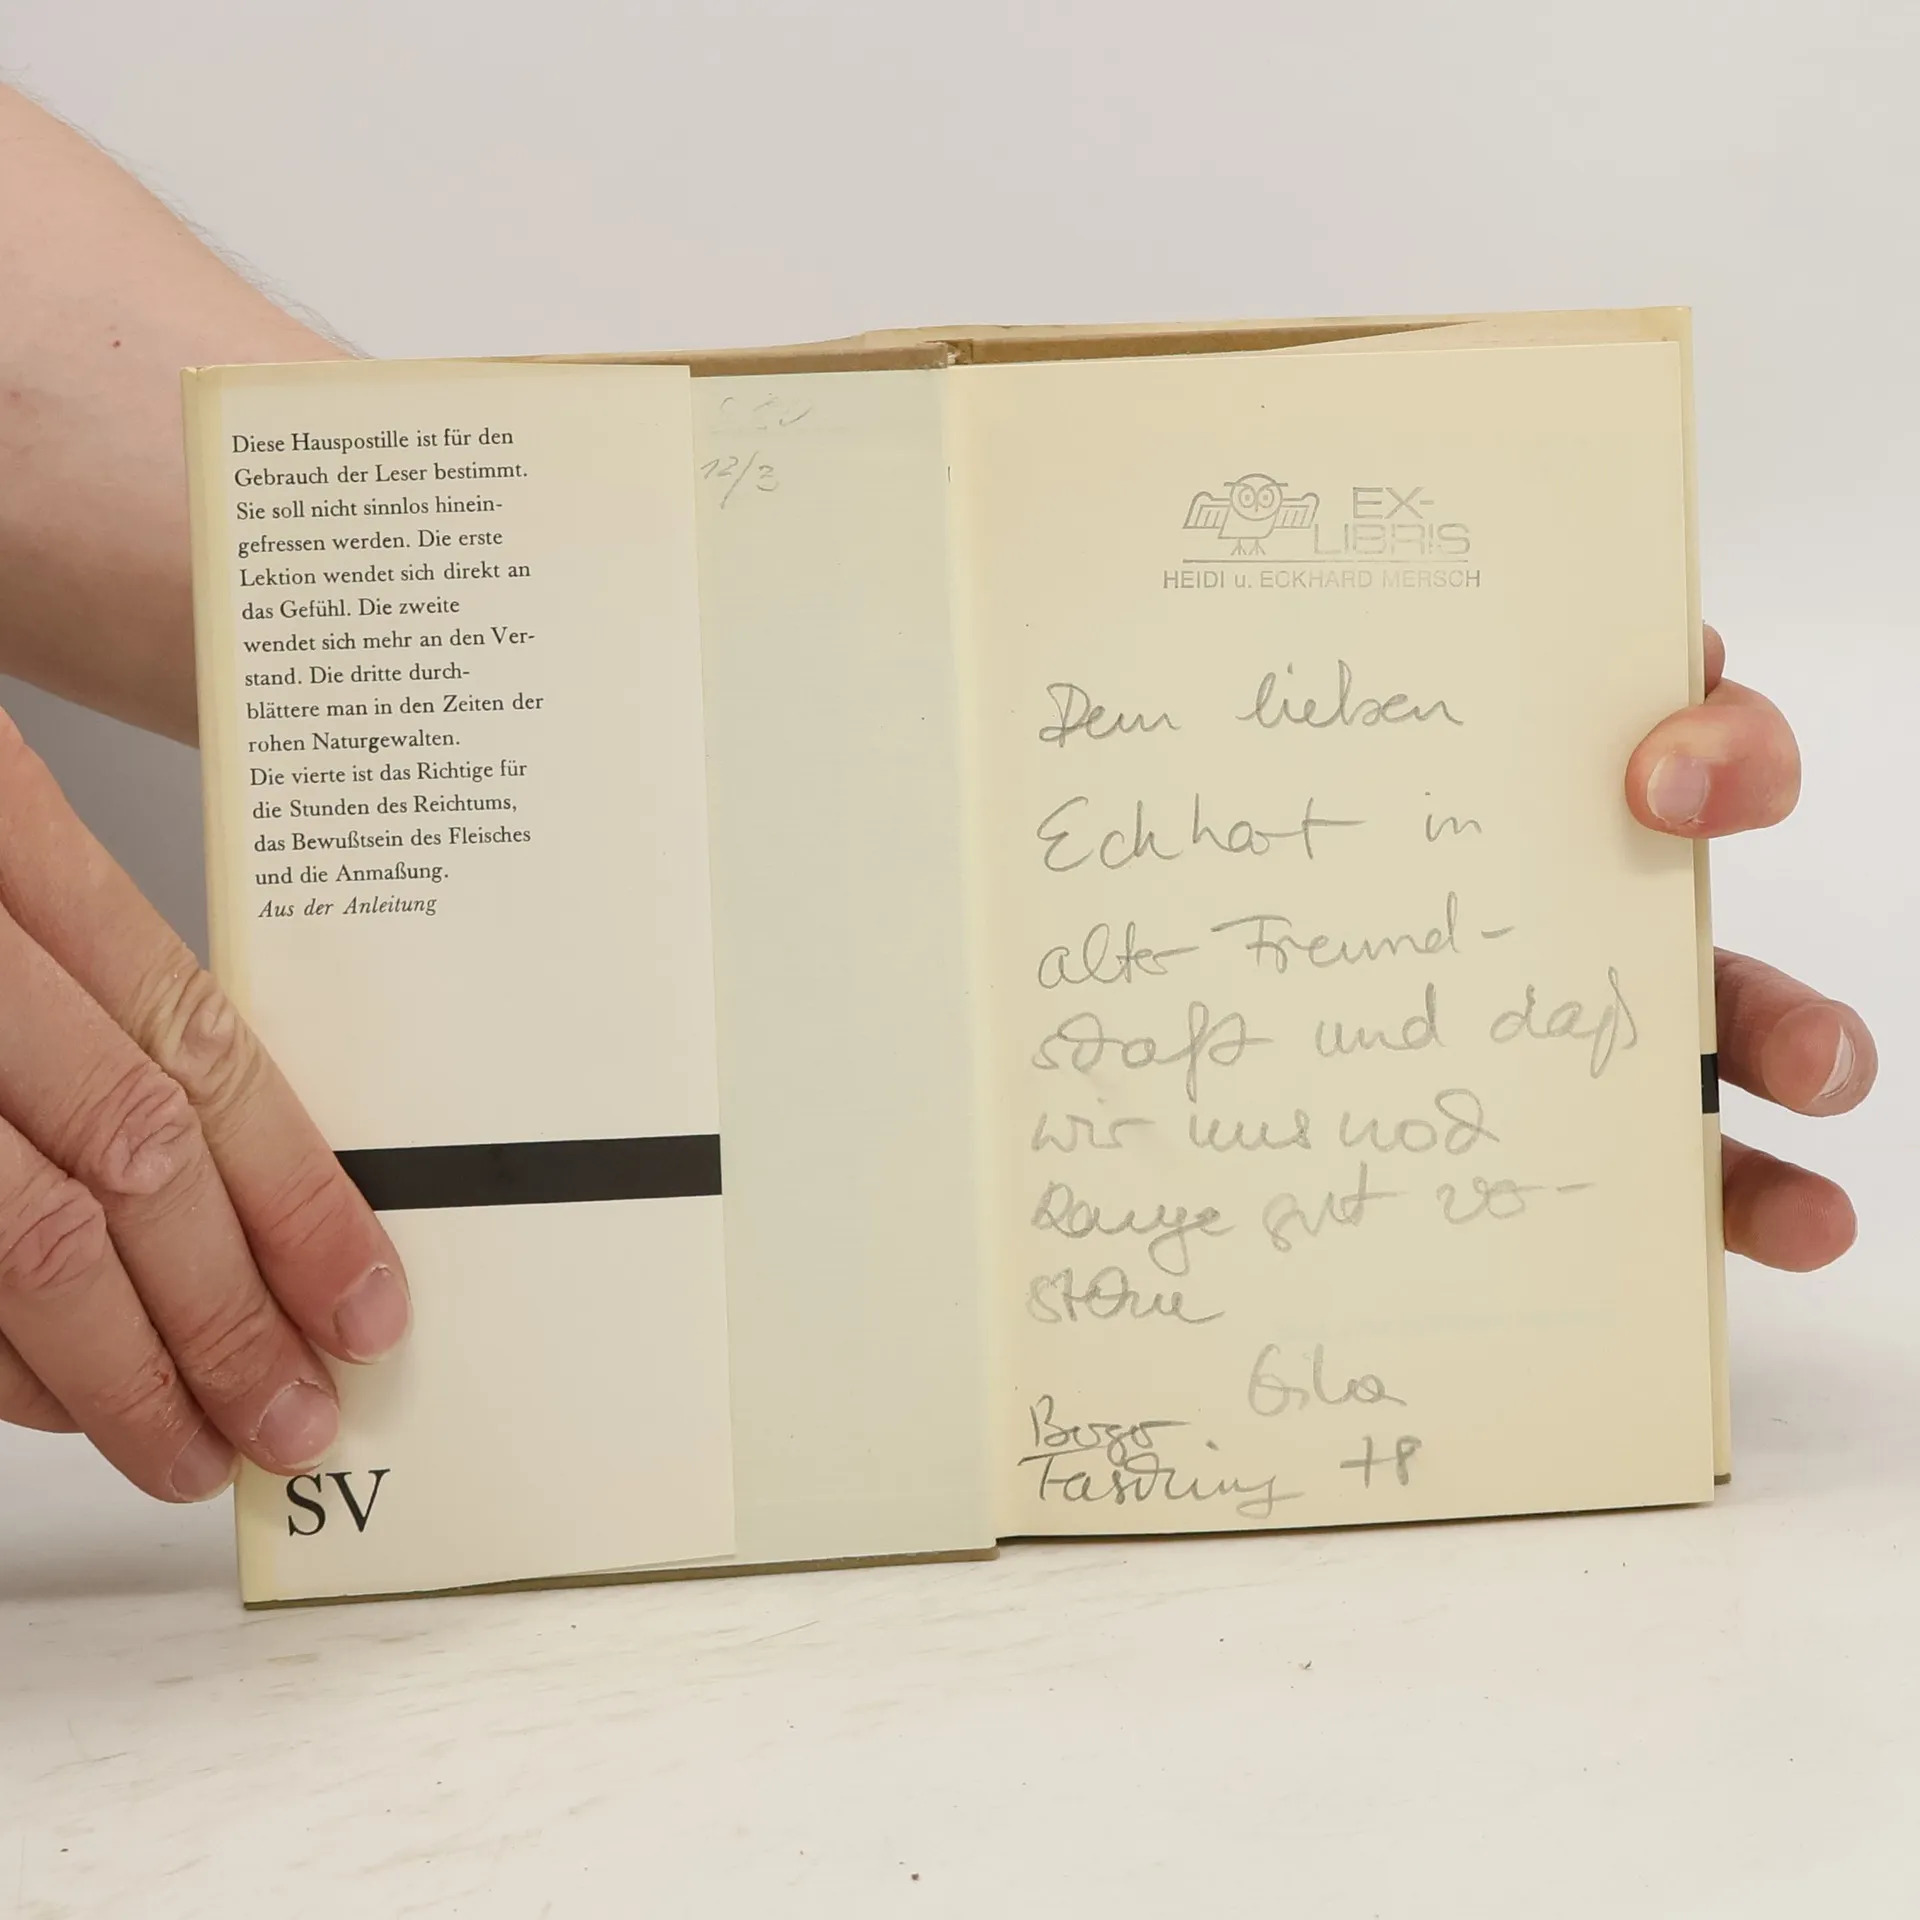 Diese Hauspostille ist für den
Gebrauch der Leser bestimmt.
Sie soll nicht sinnlos hinein-
gefressen werden. Die erste
Lektion wendet sich direkt an
das Gefühl. Die zweite
wendet sich mehr an den Ver-
stand. Die dritte durch-
blättere man in den Zeiten der
rohen Naturgewalten.
Die vierte ist das Richtige für
die Stunden des Reichtums,
das Bewußtsein des Fleisches
und die Anmaßung.
Aus der Anleitung
SV
12/3
EX-
LIBRIS
HEIDI u. ECKHARD MERSCH
Dem lieben
Eckhart in
alter Freund-
schaft und daß
wir uns noch
lange gut ver-
stehen
Fasching 78